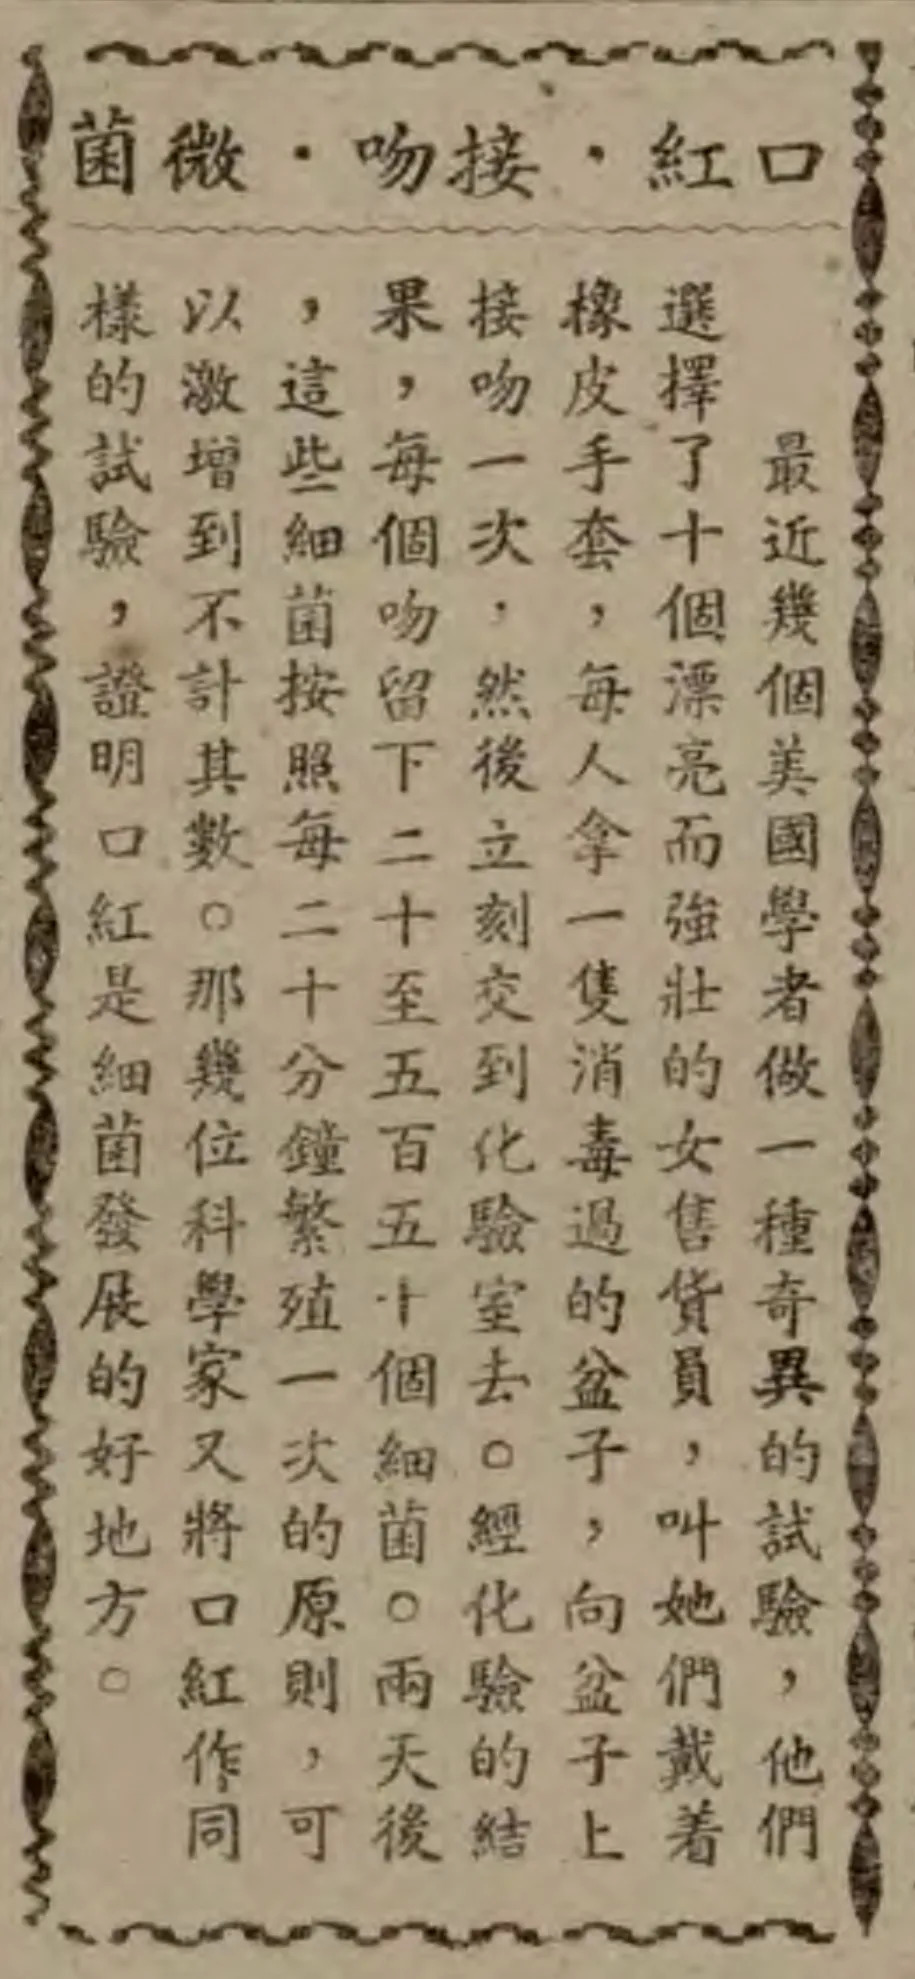 口紅・接吻・微菌
最近幾個美國學者做一種奇異的試驗，他們
選擇了十個漂亮而強壯的女售貨員，叫她們戴着
橡皮手套，每人拿一隻消毒過的盆子，向盆子上
接吻一次，然後立刻交到化驗室去。經化驗的結
果，每個吻留下二十至五百五十個細菌。兩天後
，這些細菌按照每二十分鐘繁殖一次的原則，可
以激增到不計其數。那幾位科學家又將口紅作同
樣的試驗，證明口紅是細菌發展的好地方。